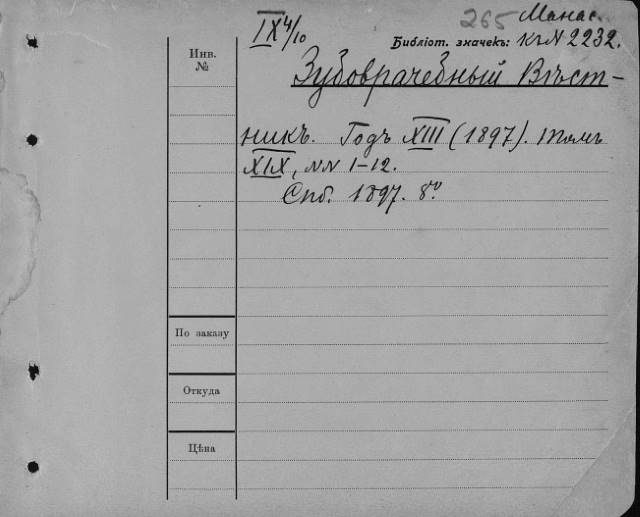 IX 4/10
265 Манас.
Библіот. значекъ: къ N 2232.
Инв.
№
Зубоврачебный Вѣст-
никъ. Годъ XIII (1897). Томъ
XIX, NN 1-12.
Спб. 1897. 8º.
По заказу
Откуда
Цѣна